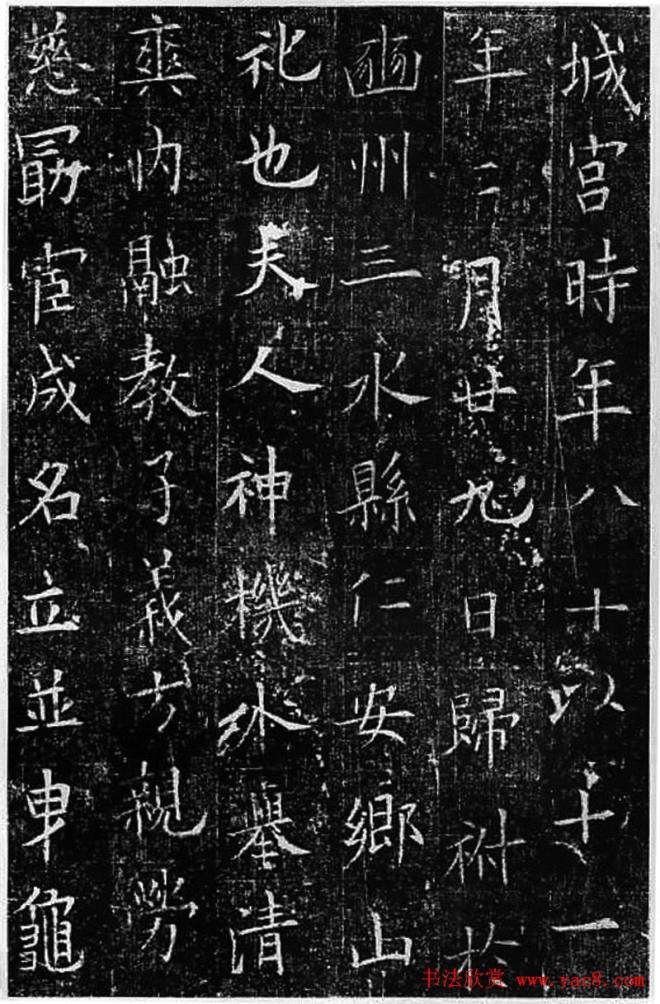 城宫時年八十以十一
年二月廿九日歸祔於
豳州三水縣仁安鄉山
礼也夫人神機外舉清
爽内融教子義方親勞
慈勗宦成名立並車龜
书法欣赏 www.yac8.com